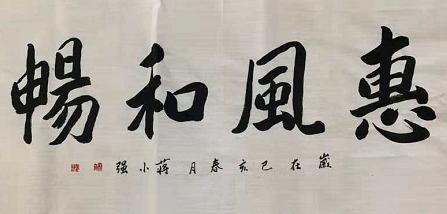 惠風和暢
歲在己亥春月蔣小强